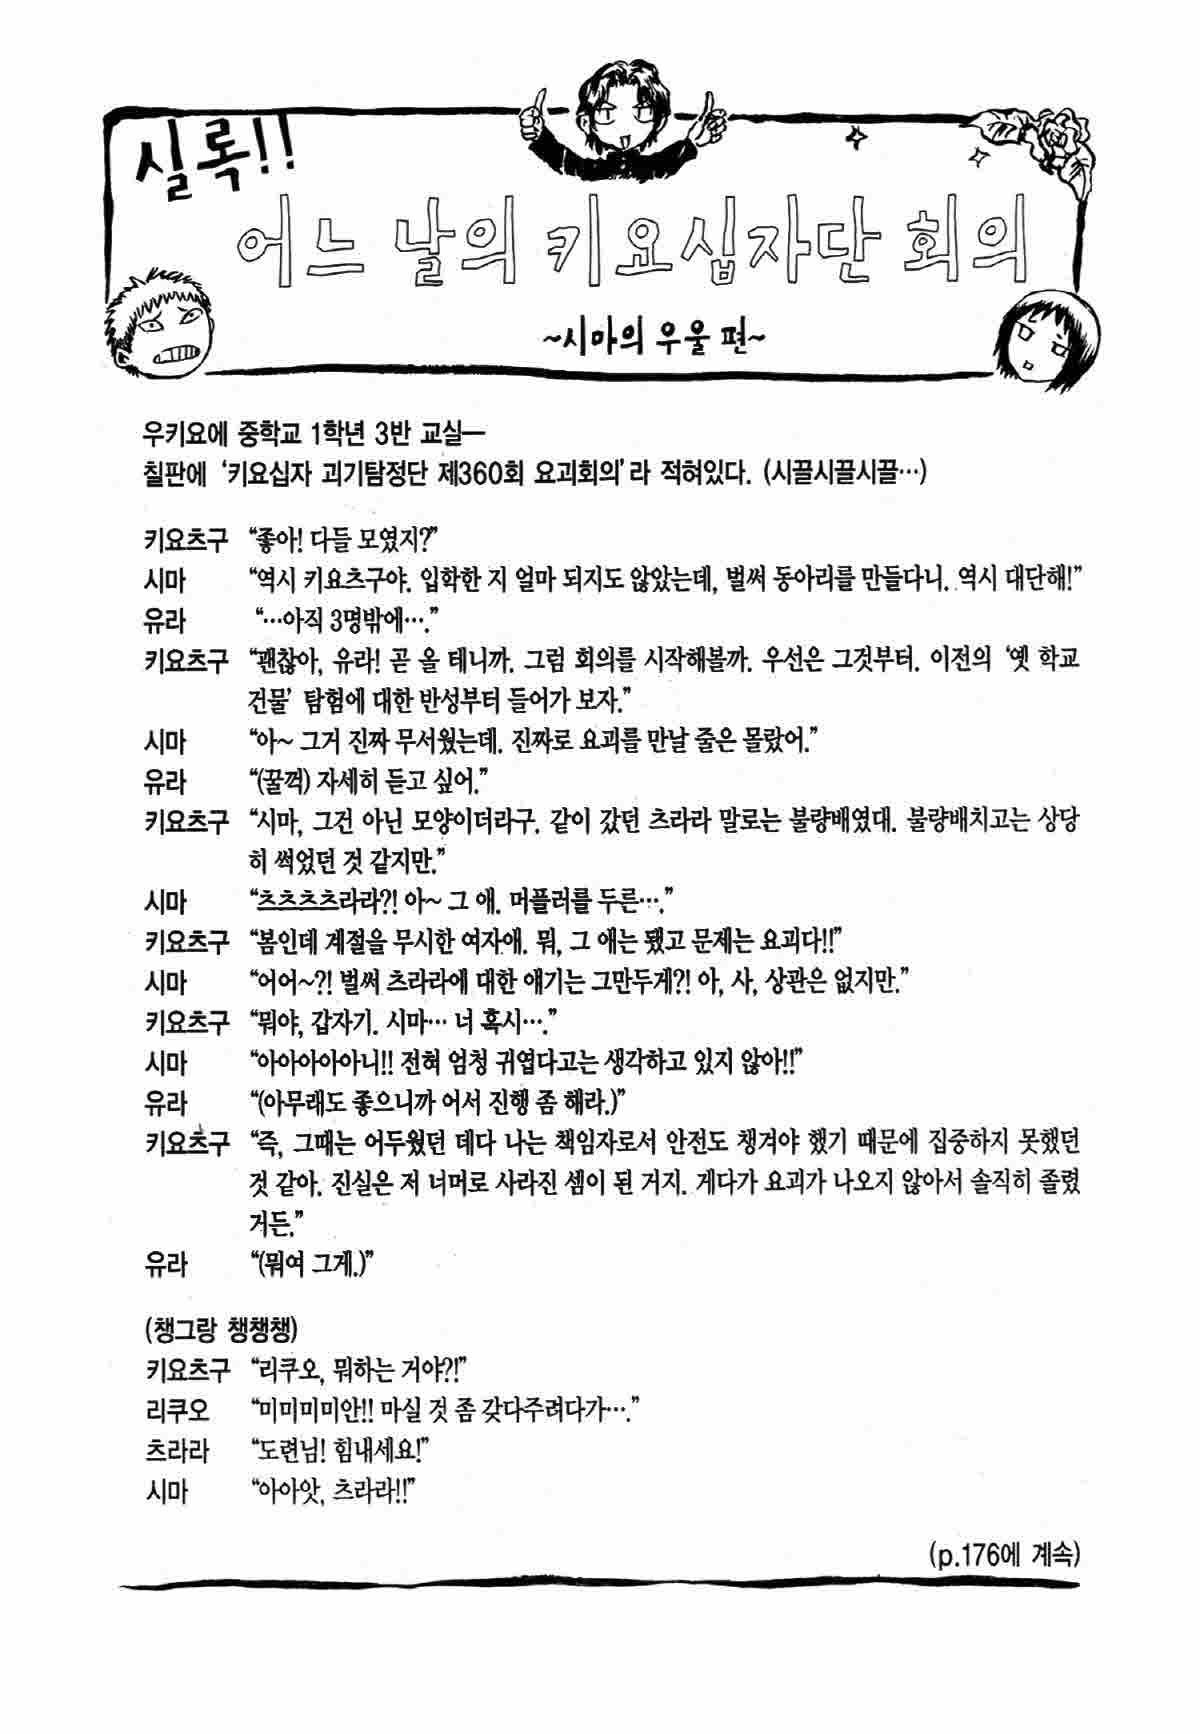 실록!!
어느 날의 키요십자단 회의
~시마의 우울 편~
우키요에 중학교 1학년 3반 교실—
칠판에 ‘키요십자 괴기탐정단 제360회 요괴회의’라 적혀있다. (시끌시끌시끌…)
키요츠구 “좋아! 다들 모였지?”
시마 “역시 키요츠구야. 입학한 지 얼마 되지도 않았는데, 벌써 동아리를 만들다니. 역시 대단해!”
유라 “…아직 3명밖에….”
키요츠구 “괜찮아, 유라! 곧 올 테니까. 그럼 회의를 시작해볼까. 우선은 그것부터. 이전의 ‘옛 학교
건물’ 탐험에 대한 반성부터 들어가 보자.”
시마 “아~ 그거 진짜 무서웠는데. 진짜로 요괴를 만날 줄은 몰랐어.”
유라 “(꿀꺽) 자세히 듣고 싶어.”
키요츠구 “시마, 그건 아닌 모양이더라구. 같이 갔던 츠라라 말로는 불량배였대. 불량배치고는 상당
히 썩었던 것 같지만.”
시마 “츠츠츠츠라라?! 아~ 그 애. 머플러를 두른….”
키요츠구 “봄인데 계절을 무시한 여자애. 뭐, 그 애는 됐고 문제는 요괴다!!”
시마 “어어~?! 벌써 츠라라에 대한 얘기는 그만두게?! 아, 사, 상관은 없지만.”
키요츠구 “뭐야, 갑자기. 시마… 너 혹시….”
시마 “아아아아아니!! 전혀 엄청 귀엽다고는 생각하고 있지 않아!!”
유라 “(아무래도 좋으니까 어서 진행 좀 해라.)”
키요츠구 “즉, 그때는 어두웠던 데다 나는 책임자로서 안전도 챙겨야 했기 때문에 집중하지 못했던
것 같아. 진실은 저 너머로 사라진 셈이 된 거지. 게다가 요괴가 나오지 않아서 솔직히 졸렸
거든.”
유라 “(뭐여 그게.)”
(챙그랑 챙챙챙)
키요츠구 “리쿠오, 뭐하는 거야?!”
리쿠오 “미미미미안!! 마실 것 좀 갖다주려다가….”
츠라라 “도련님! 힘내세요!”
시마 “아아앗, 츠라라!!”
(p.176에 계속)